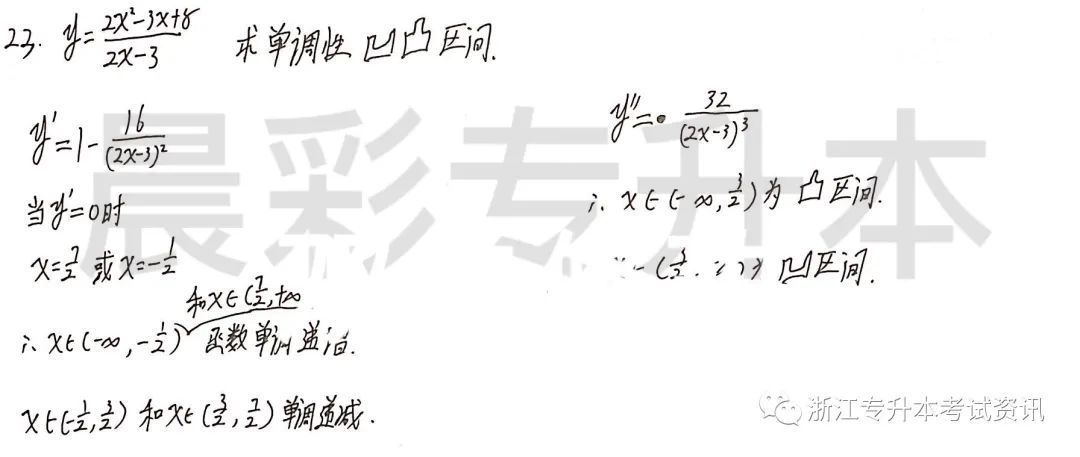 23. y=(2x²-3x+8)/(2x-3) 求单调性 凹凸区间.
y'=1-16/(2x-3)²
当y'=0时
x=7/2 或 x=-1/2
和x∈(7/2,+∞
∴ x∈(-∞,-1/2) 函数单调递增.
x∈(-1/2,3/2) 和x∈(3/2,7/2) 单调递减.
y''= 32/(2x-3)³
∴ x∈(-∞,3/2)为 凸区间.
(3/2, 凹区间.
晨彩专升本
浙江专升本考试资讯